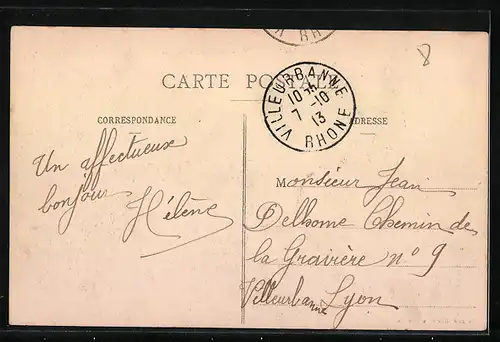 RH
CARTE POSTALE
VILLEURBANNE
10 H
7 -10
13
RHONE
CORRESPONDANCE
ADRESSE
8
Un affectueux
bonjour
Hélène
Monsieur Jean
Delhome Chemin de
la Gravière n° 9
Villeurbanne Lyon